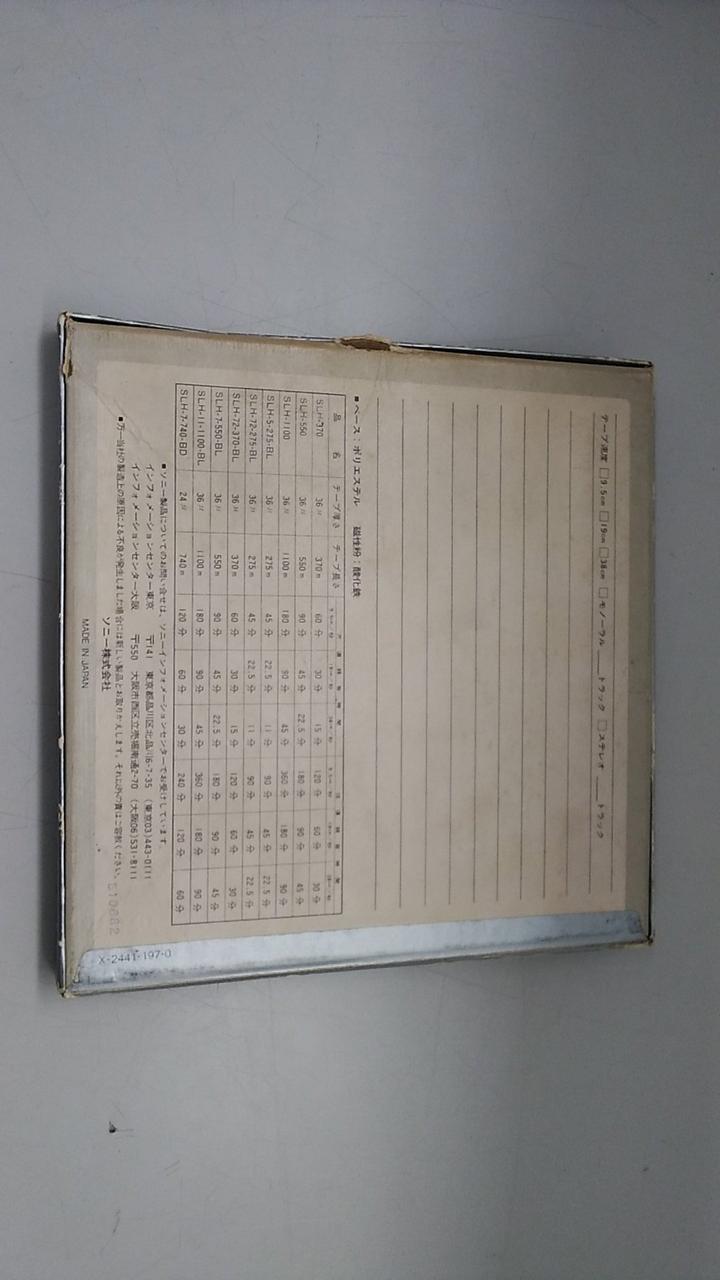 テープ速度 □9.5cm □19cm □38cm □モノーラル ___トラック □ステレオ ___トラック
■ベース:ポリエステル 磁性粉:酸化鉄
品 名 テープ厚さ テープ長さ
SLH-370 36μ 370m 60分 30分 15分 120分 60分 30分
SLH-550 36μ 550m 90分 45分 22.5分 180分 90分 45分
SLH-1100 36μ 1100m 180分 90分 45分 360分 180分 90分
SLH-5-275-BL 36μ 275m 45分 22.5分 11分 90分 45分 22.5分
SLH-72-275-BL 36μ 275m 45分 22.5分 11分 90分 45分 22.5分
SLH-72-370-BL 36μ 370m 60分 30分 15分 120分 60分 30分
SLH-7-550-BL 36μ 550m 90分 45分 22.5分 180分 90分 45分
SLH-11-1100-BL 36μ 1100m 180分 90分 45分 360分 180分 90分
SLH-7-740-BD 24μ 740m 120分 60分 30分 240分 120分 60分
■ソニー製品についてのお問い合せは、ソニーインフォメーションセンターでお受けしています。
インフォメーションセンター東京 〒141 東京都品川区北品川6-7-35 (東京03)443-0111
インフォメーションセンター大阪 〒550 大阪市西区立売堀南通2-70 (大阪06)531-8111
■万一当社の製造上の原因による不良が発生しました場合には新しい製品とお取りかえします。それ以外の責はご容赦ください。
ソニー株式会社
MADE IN JAPAN
X-2441-197-0